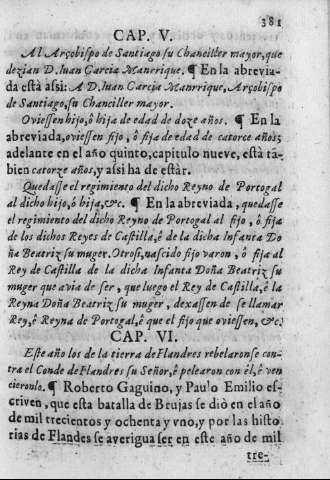 381
CAP. V.
Al Arçobispo de Santiago su Chanciller mayor, que
dezian D. Iuan Garcia Manrrique. ¶ En la abrevia-
da està assi: A D. Iuan Garcia Manrrique, Arçobispo
de Santiago, su Chanciller mayor.
Oviessen hijo, ô hija de edad de doze años. ¶ En la
abreviada, oviessen fijo, ô fija de edad de catorce años;
adelante en el año quinto, capitulo nueve, està tã-
bien catorze años, y assi ha de estàr.
Quedasse el regimiento del dicho Reyno de Portogal
al dicho hijo, ô hija, &c. ¶ En la abreviada, quedasse
el regimiento del dicho Reyno de Portogal al fijo, ô fija
de los dichos Reyes de Castilla, ê de la dicha Infanta Do
ña Beatriz su muger. Otrosi, nascido fijo varon, ô fija al
Rey de Castilla de la dicha Infanta Doña Beatriz su
muger que avia de ser, que luego el Rey de Castilla, ê la
Reyna Doña Beatriz su muger, dexassen de se llamar
Rey, ê Reyna de Portogal, ê que el fijo que oviessen, &c.
CAP. VI.
Este año los de la tierra de Flandres rebelaronse con-
tra el Conde de Flandres su Señor, ê pelearon con èl, ê ven
cieronlo. ¶ Roberto Gaguino, y Paulo Emilio es-
criven, que esta batalla de Brujas se diò en el año
de mil trecientos y ochenta y vno, y por las histo
rias de Flandes se averigua ser en este año de mil
tre-